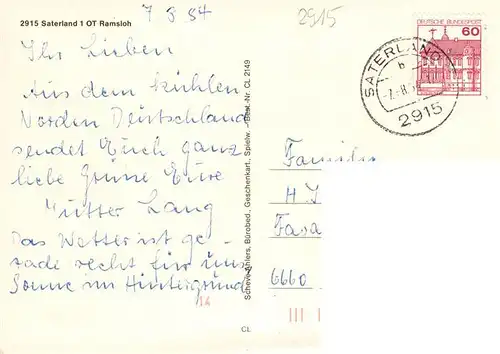 2915 Saterland 1 OT Ramsloh
7 8 84
2915
Ihr Lieben
Aus dem kühlen
Norden Deutschland
sendet Euch ganz
liebe Grüße Eure
Mutter Lang
Das Wetter ist ge-
rade recht für uns
Sonne im Hintergrund
Scheve-Ahlers, Bürobed., Geschenkart., Spielw. - Best.-Nr. CL 2149
CL
DEUTSCHE BUNDESPOST
60
SATERLAND
b
2915
Familie
6660